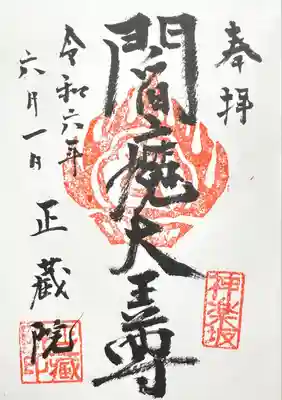 奉拝
神楽坂
閻魔大王尊
令和六年
六月一日
正蔵院